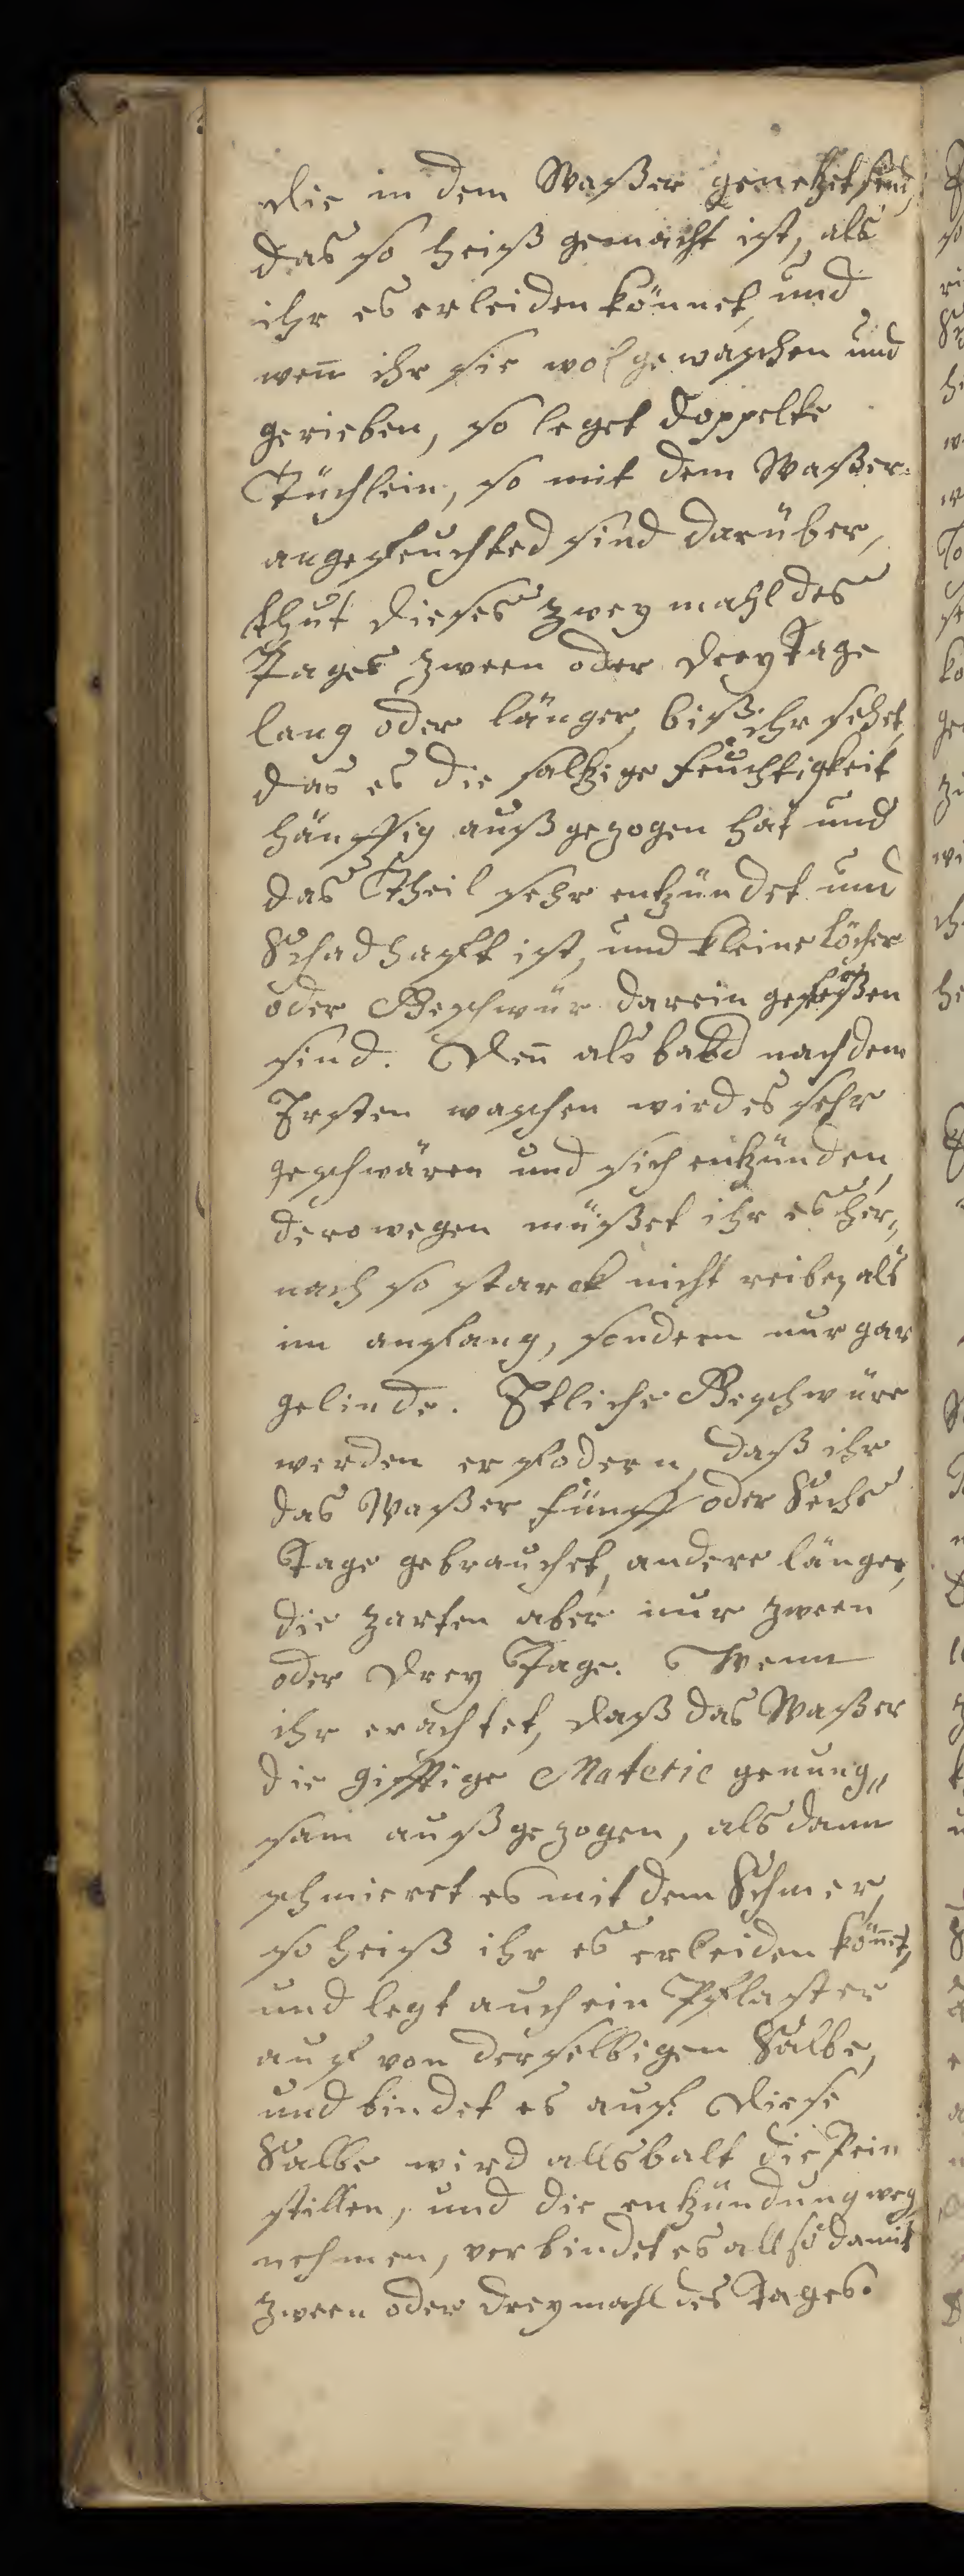 die in dem Waßer genetzet sind,
das so heiß gemacht ist, als
ihr es erleiden könnet, und
weñ ihr sie wol gewaschen und
gerieben, so leget doppelte
Tüchlein, so mit dem Waßer
angefeuchted sind darüber,
thut dieses zwey mahl des
Tages zween oder drey Tage
lang oder länger, biß ihr sehet,
das es die saltzige feuchtigkeit
häuffig außgezogen hat und
das Theil sehr entzündet und
Schadhafft ist, und kleine löcher
oder Geschwür darein gefreßen
sind. Deñ als bald nach dem
Ersten waschen wird es sehr
geschwären und sich entzünden,
derowegen müßet ihr es her„
nach so starck nicht reiben als
im anfang, sondern nur gar
gelinde. Etliche Geschwüre
werden erfodern, daß ihr
das Waßer fünff oder Sechs
Tage gebrauchet, andere länger,
die zarten aber nur zween
oder drey Tage. Wenn
ihr erachtet, daß das Waßer
die gifftige Materie genung„
sam außgezogen, als dann
schmieret es mit dem Schmer,
so heiß ihr es erleiden köñet,
und legt auch ein Pflaster
auf von derselbigen Salbe,
und bindet es auf. Diese
Salbe wird allsbalt die Pein
stillen, und die entzündung weg
nehmen, verbindet es allso damit
zween oder dreymahl des Tages.